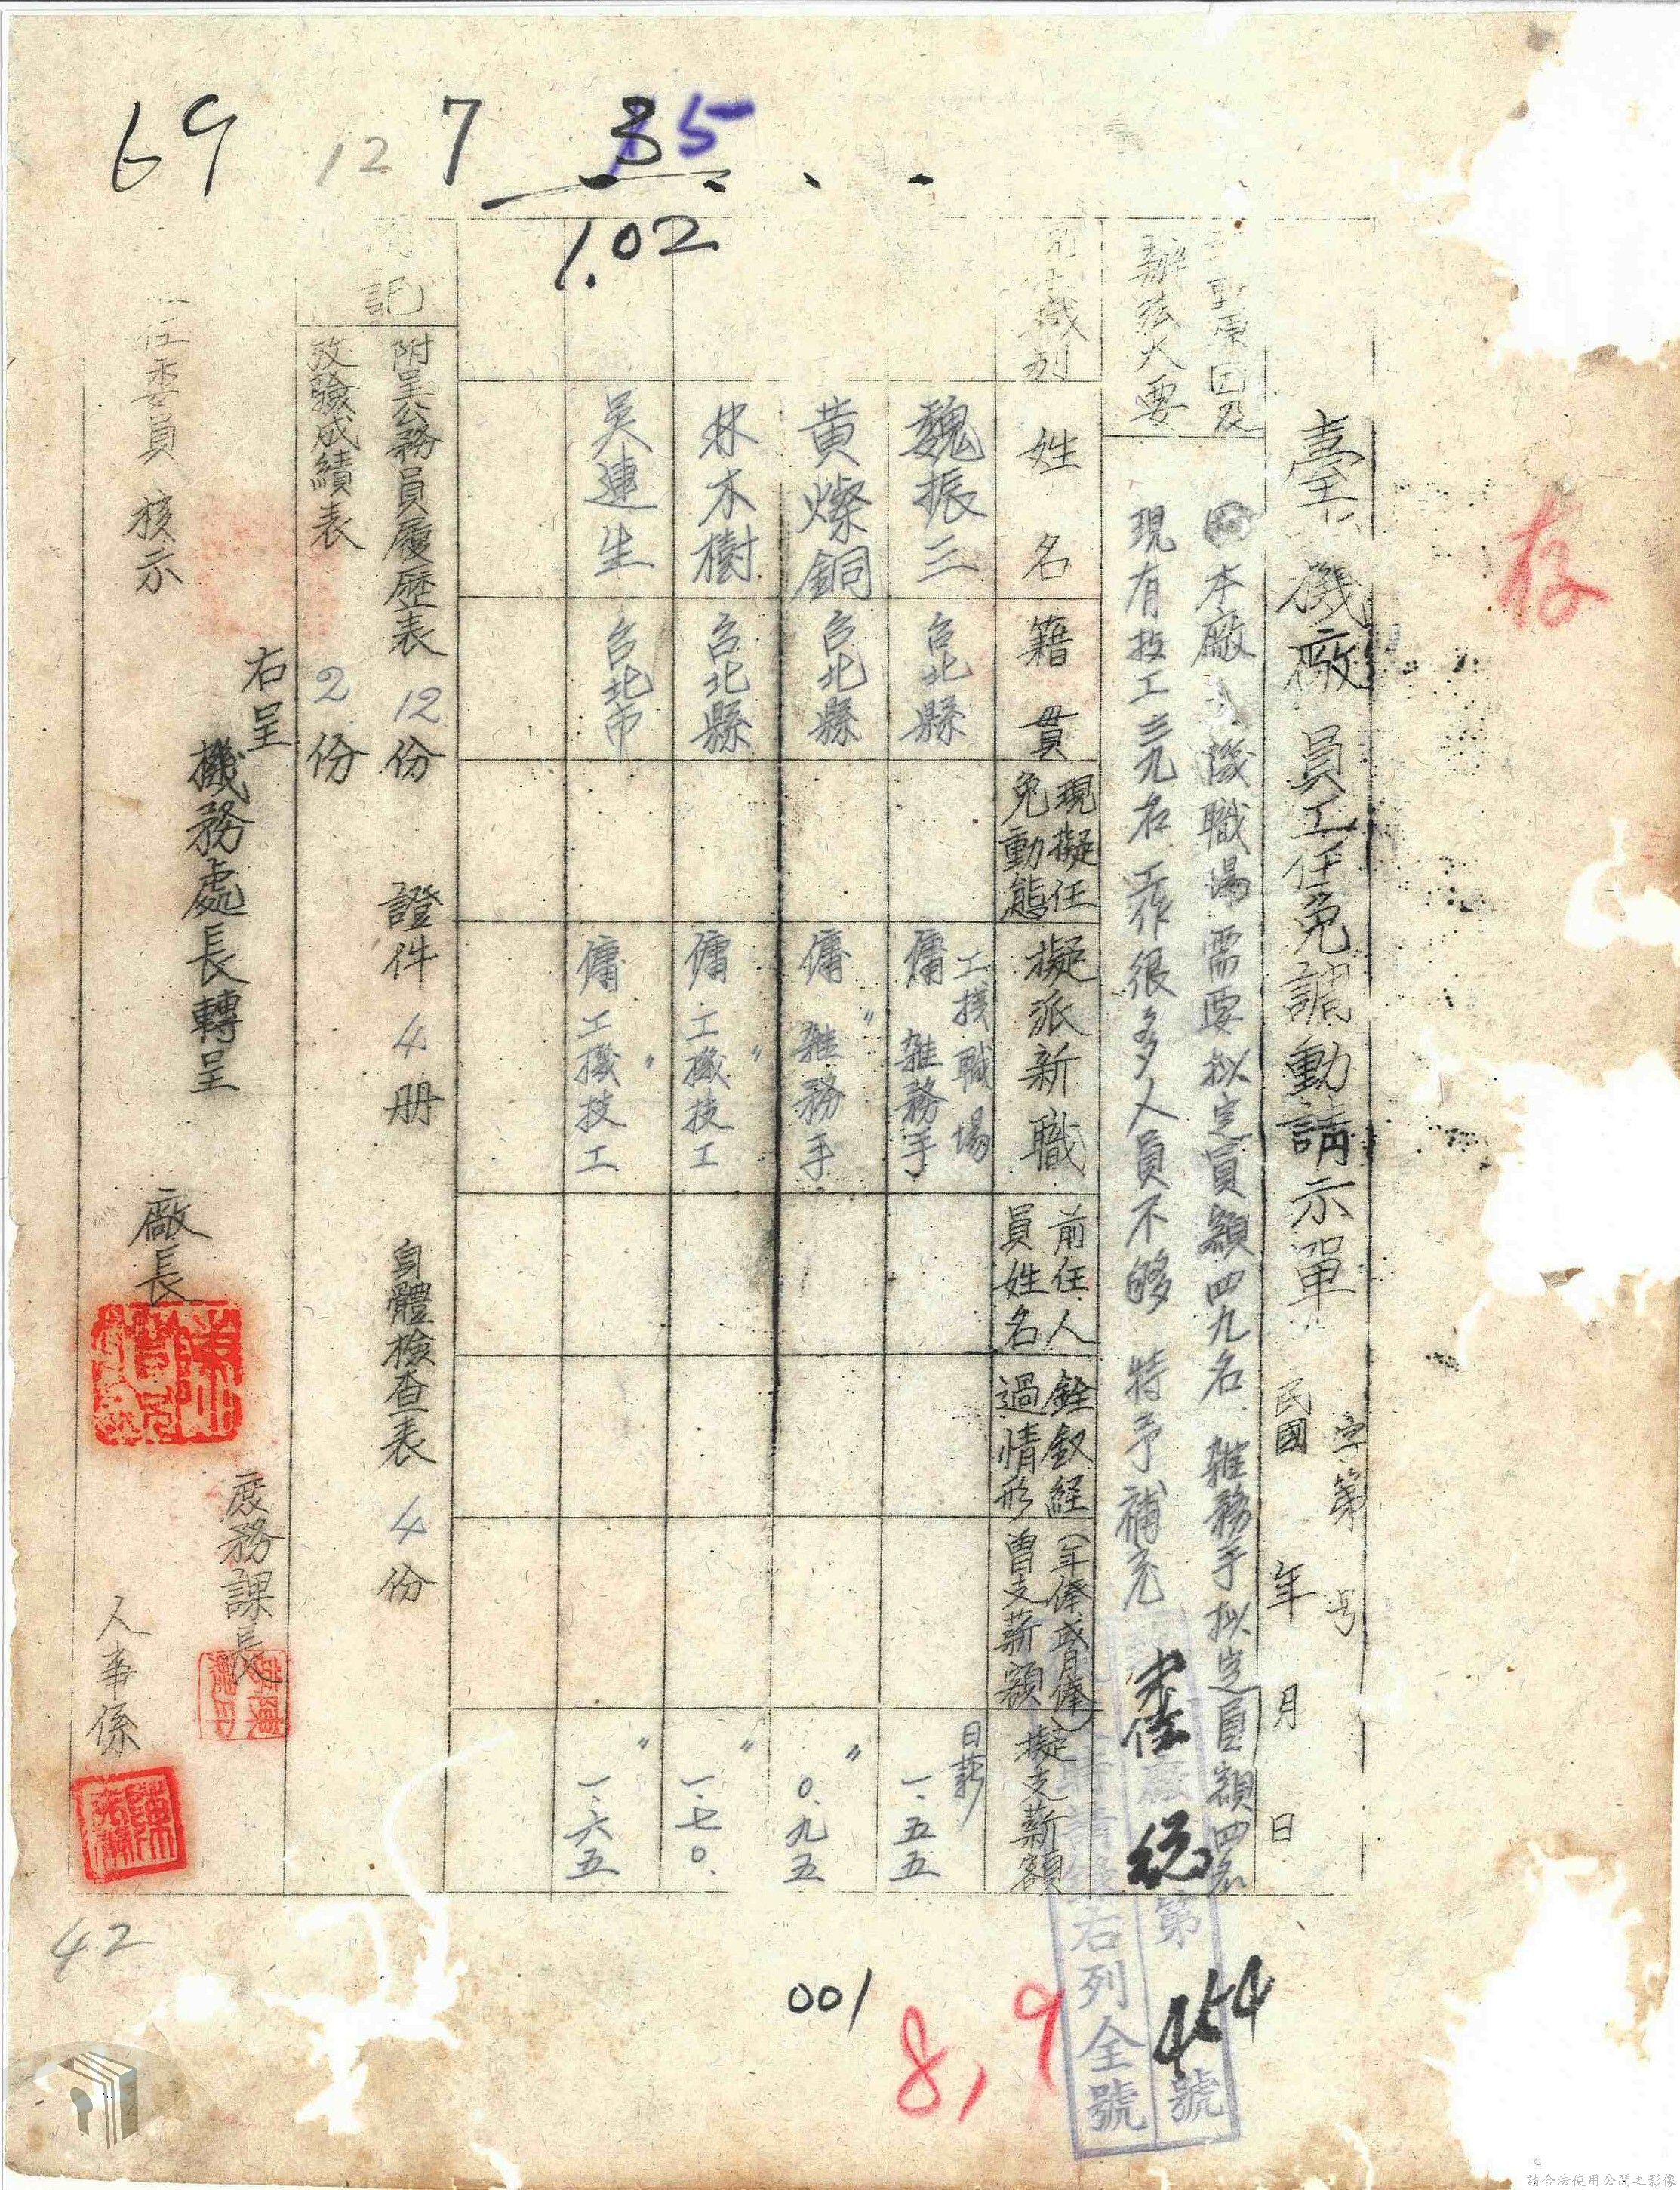 存
臺 機廠 員工任免調動請示單
字第 号
民國 年 月 日
原因及
辦法大要
本廠 機職場需要拟定員額四九名 雑務手拟定員額四名
現有技工三九名 工作很多人員不够 特予補充
職别
姓名
籍貫
現擬任
免動態
擬派新職
前任人
員姓名
銓敘経
過情形
(年俸或月俸)
曽支薪額
擬支薪額
魏振三 台北縣 工機職場 傭 雑務手 日薪 一.五五
黄燦銅 台北縣 〃 傭 雑務手 〃 0.九五
林木樹 台北縣 〃 傭 工機技工 〃 一.七0.
吴連生 台北市 〃 傭 工機技工 〃 一.六五
記
附呈公務員履歷表 12份 證件 4册 身體檢查表 4份
攷驗成績表 2份
右呈
機務處長轉呈
任委員 核示
廠長
庶務課長
人事係
第 464 號
右列全號
69
12
7
35
1.02
42
001
8,9
請合法使用公開之影像